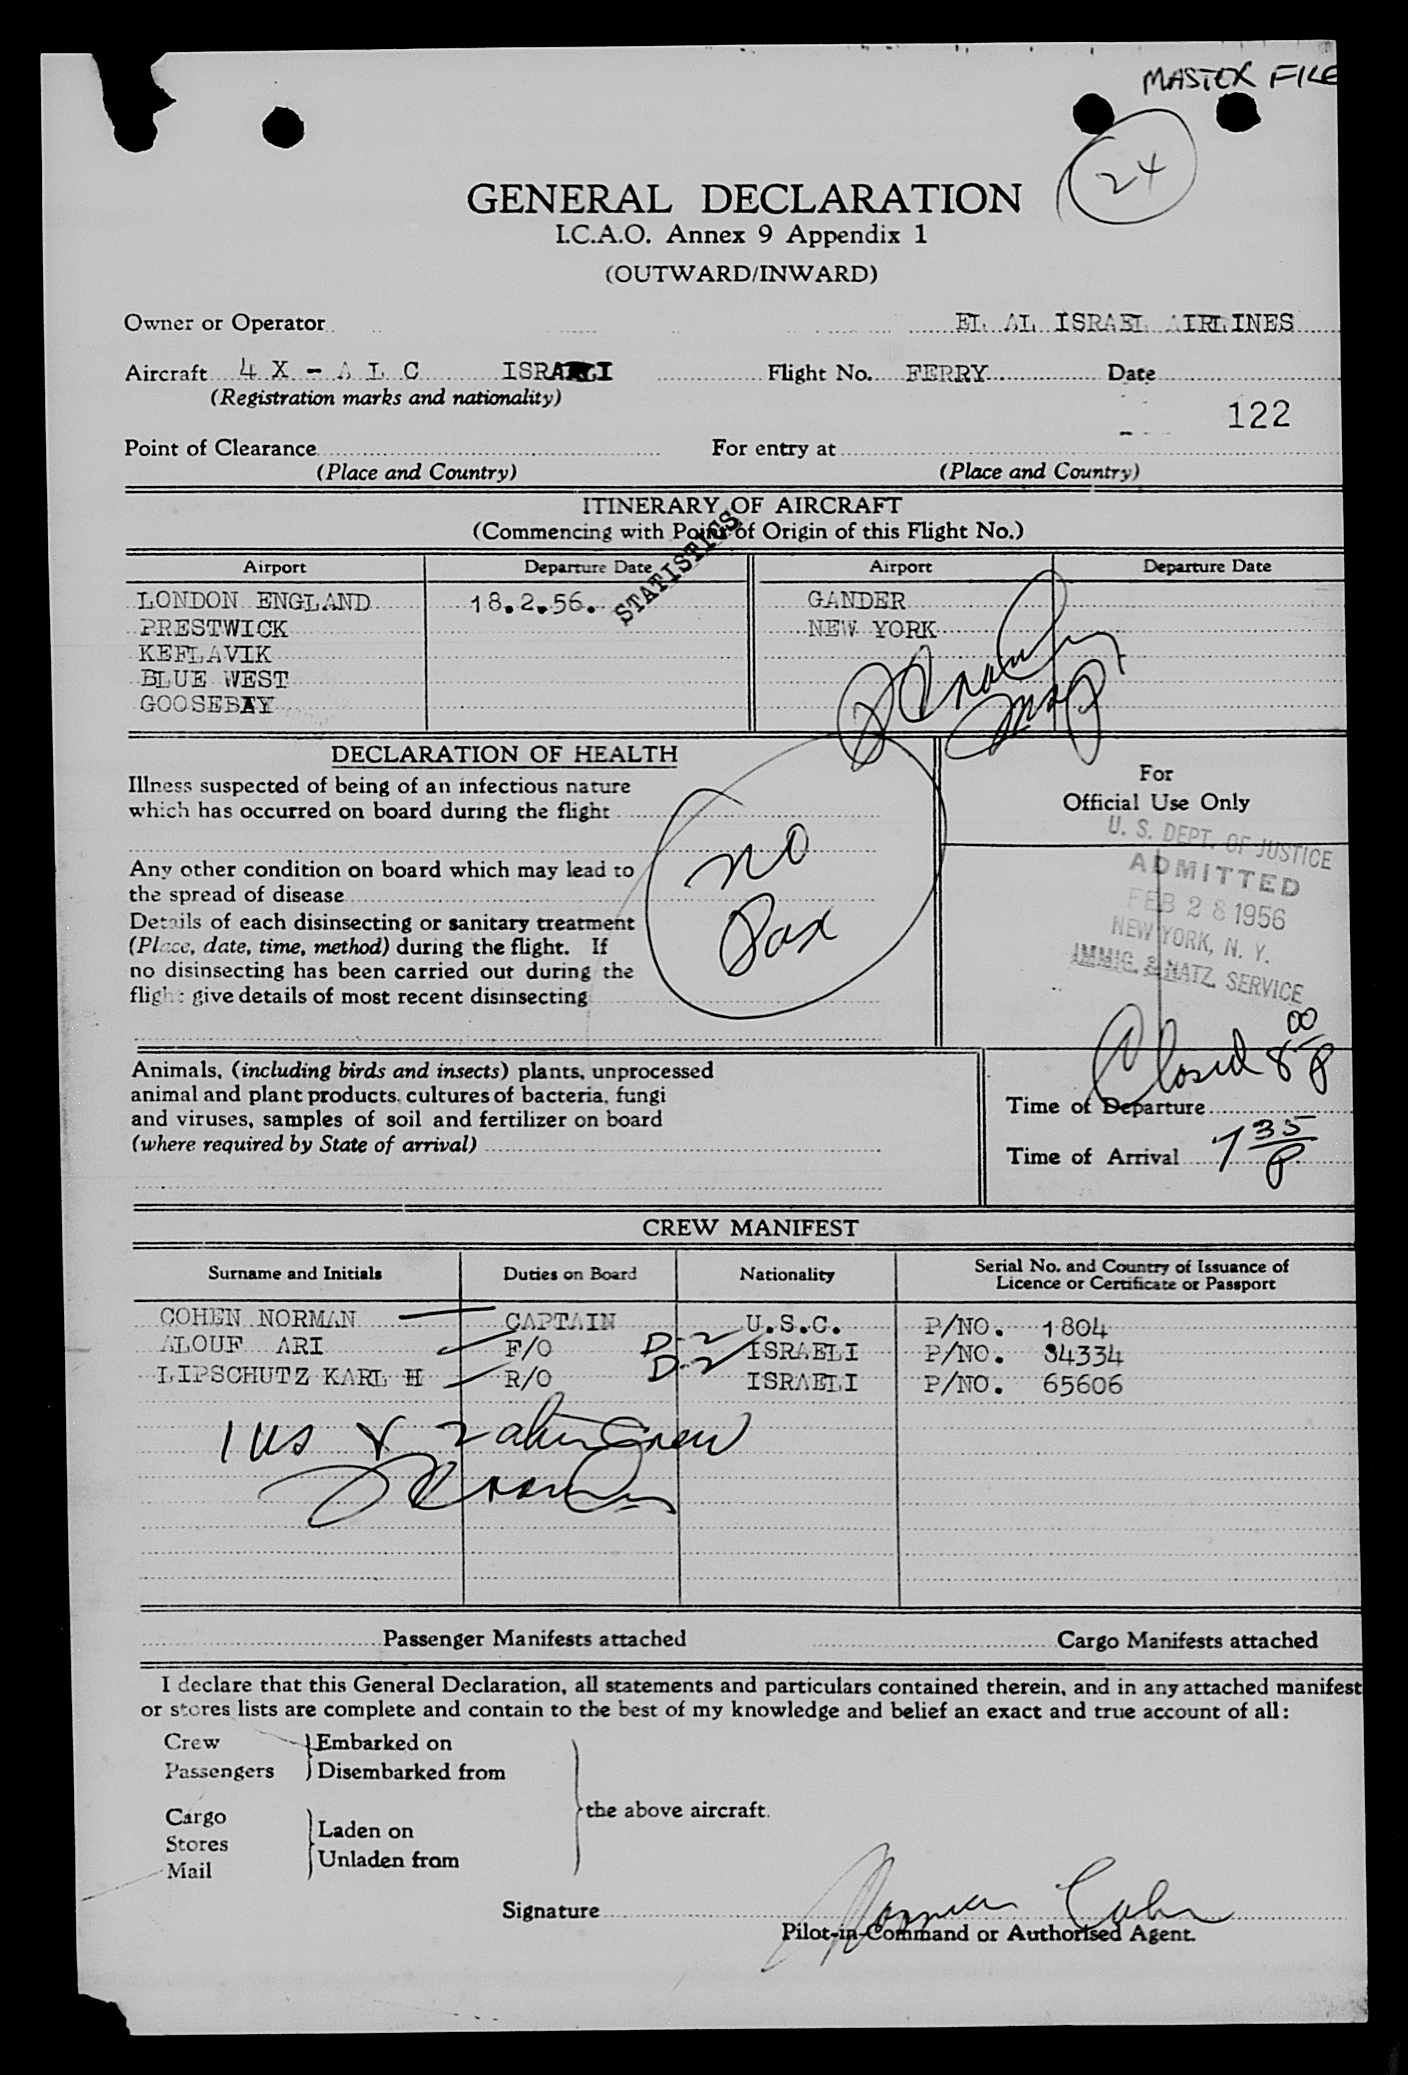 MASTER FILE
24
GENERAL DECLARATION
I.C.A.O. Annex 9 Appendix 1
(OUTWARD/INWARD)
Owner or Operator EL AL ISRAEL AIRLINES
Aircraft 4 X - A L C ISRAELI Flight No. FERRY Date
(Registration marks and nationality)
122
Point of Clearance For entry at
(Place and Country) (Place and Country)
ITINERARY OF AIRCRAFT
(Commencing with Point of Origin of this Flight No.)
STATISTICS
Airport Departure Date Airport Departure Date
LONDON ENGLAND 18.2.56. GANDER
PRESTWICK NEW YORK
KEFLAVIK
BLUE WEST
GOOSEBAY
DECLARATION OF HEALTH
Illness suspected of being of an infectious nature
which has occurred on board during the flight
Any other condition on board which may lead to
the spread of disease
Details of each disinsecting or sanitary treatment
(Place, date, time, method) during the flight. If
no disinsecting has been carried out during the
flight give details of most recent disinsecting
no
Pax
For
Official Use Only
U. S. DEPT. OF JUSTICE
ADMITTED
FEB 28 1956
NEW YORK, N. Y.
IMMIG. & NATZ. SERVICE
Animals, (including birds and insects) plants, unprocessed
animal and plant products, cultures of bacteria, fungi
and viruses, samples of soil and fertilizer on board
(where required by State of arrival)
Closed 8 00 P
Time of Departure
Time of Arrival 7 35 P
CREW MANIFEST
Surname and Initials Duties on Board Nationality Serial No. and Country of Issuance of
Licence or Certificate or Passport
COHEN NORMAN CAPTAIN U.S.C. P/NO. 1804
ALOUF ARI F/O D-2 ISRAELI P/NO. 34334
LIPSCHUTZ KARL H R/O D-2 ISRAELI P/NO. 65606
1 US & 2 alien Crew
Passenger Manifests attached Cargo Manifests attached
I declare that this General Declaration, all statements and particulars contained therein, and in any attached manifest
or stores lists are complete and contain to the best of my knowledge and belief an exact and true account of all:
Crew Embarked on
Passengers Disembarked from
the above aircraft.
Cargo
Stores Laden on
Mail Unladen from
Signature Norman Cohen
Pilot-in-Command or Authorised Agent.